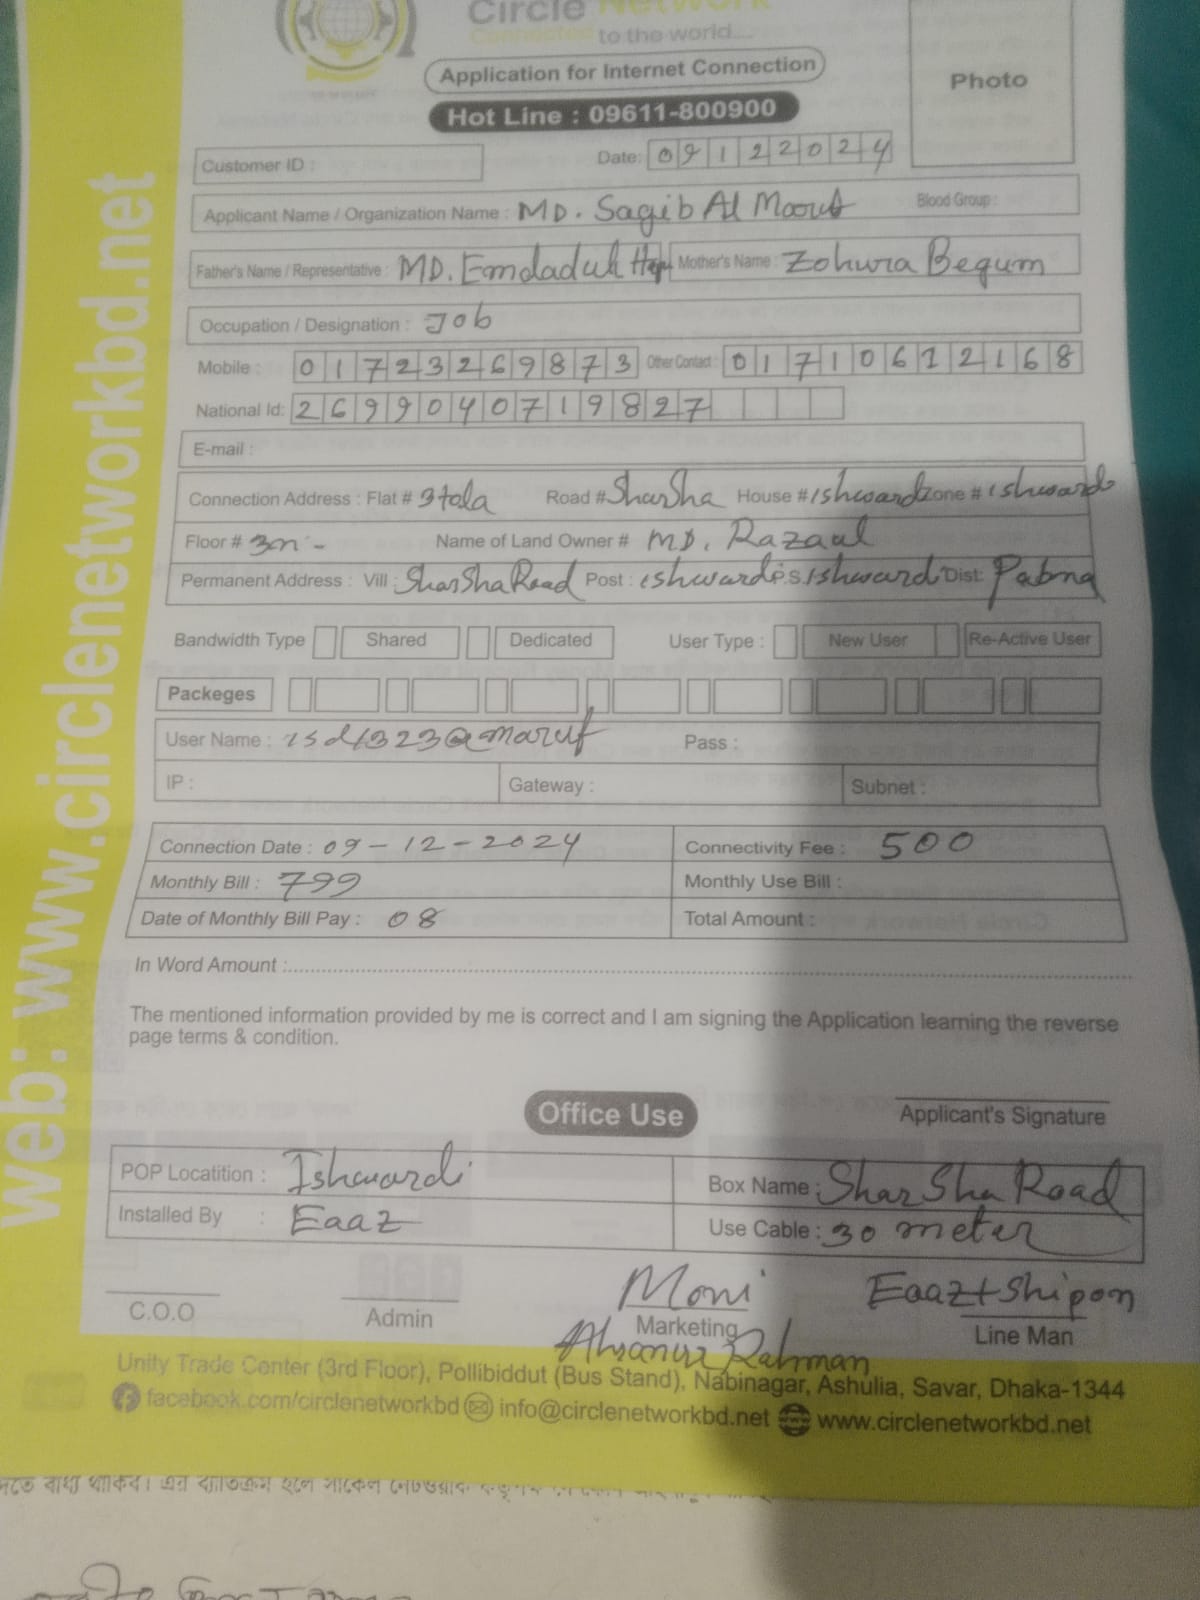 Circle Network
Connected to the world....
Application for Internet Connection
Photo
Hot Line : 09611-800900
Customer ID :
Date: 09122024
Applicant Name / Organization Name : MD. Sagib Al Moruf Blood Group :
Father's Name / Representative : MD. Emdadul Mother's Name : Zohura Begum
Occupation / Designation : Job
Mobile : 01723269873 Other Contact : 01710612168
National Id: 2699040719827
E-mail :
Connection Address : Flat # 3 tala Road # SharSha House # ishwardi Zone # ishwardi
Floor # 3n Name of Land Owner # MD. Razaul
Permanent Address : Vill : SharSha Road Post : ishwardi P.S. Ishwardi Dist: Pabna
Bandwidth Type Shared Dedicated User Type : New User Re-Active User
Packeges
User Name : isd1323@maruf Pass :
IP : Gateway : Subnet :
Connection Date : 09-12-2024 Connectivity Fee : 500
Monthly Bill : 799 Monthly Use Bill :
Date of Monthly Bill Pay : 08 Total Amount :
In Word Amount :
The mentioned information provided by me is correct and I am signing the Application learning the reverse
page terms & condition.
Office Use
Applicant's Signature
POP Locatition : Ishwardi Box Name : SharSha Road
Installed By : Eaaz Use Cable : 30 meter
Moni Eaaz+Shipon
C.O.O Admin Marketing Line Man
Rahman
Unity Trade Center (3rd Floor), Pollibiddut (Bus Stand), Nabinagar, Ashulia, Savar, Dhaka-1344
facebook.com/circlenetworkbd info@circlenetworkbd.net www.circlenetworkbd.net
web: www.circlenetworkbd.net